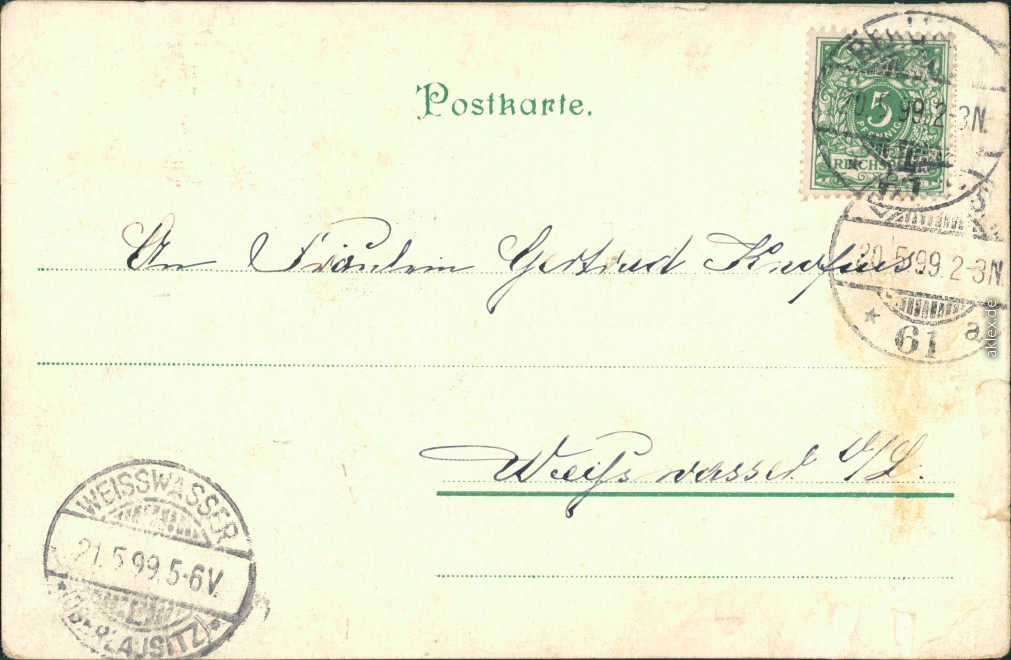 Postkarte.
BERLIN
20.5.99.2-3N.
5
PFENNIG
20.5.99.2-3N.
* 61 a
An Fräulein Gertrud
Weißwasser O/L.
WEISSWASSER
21.5.99.5-6V.
* (OBERLAUSITZ) *
aklex.de